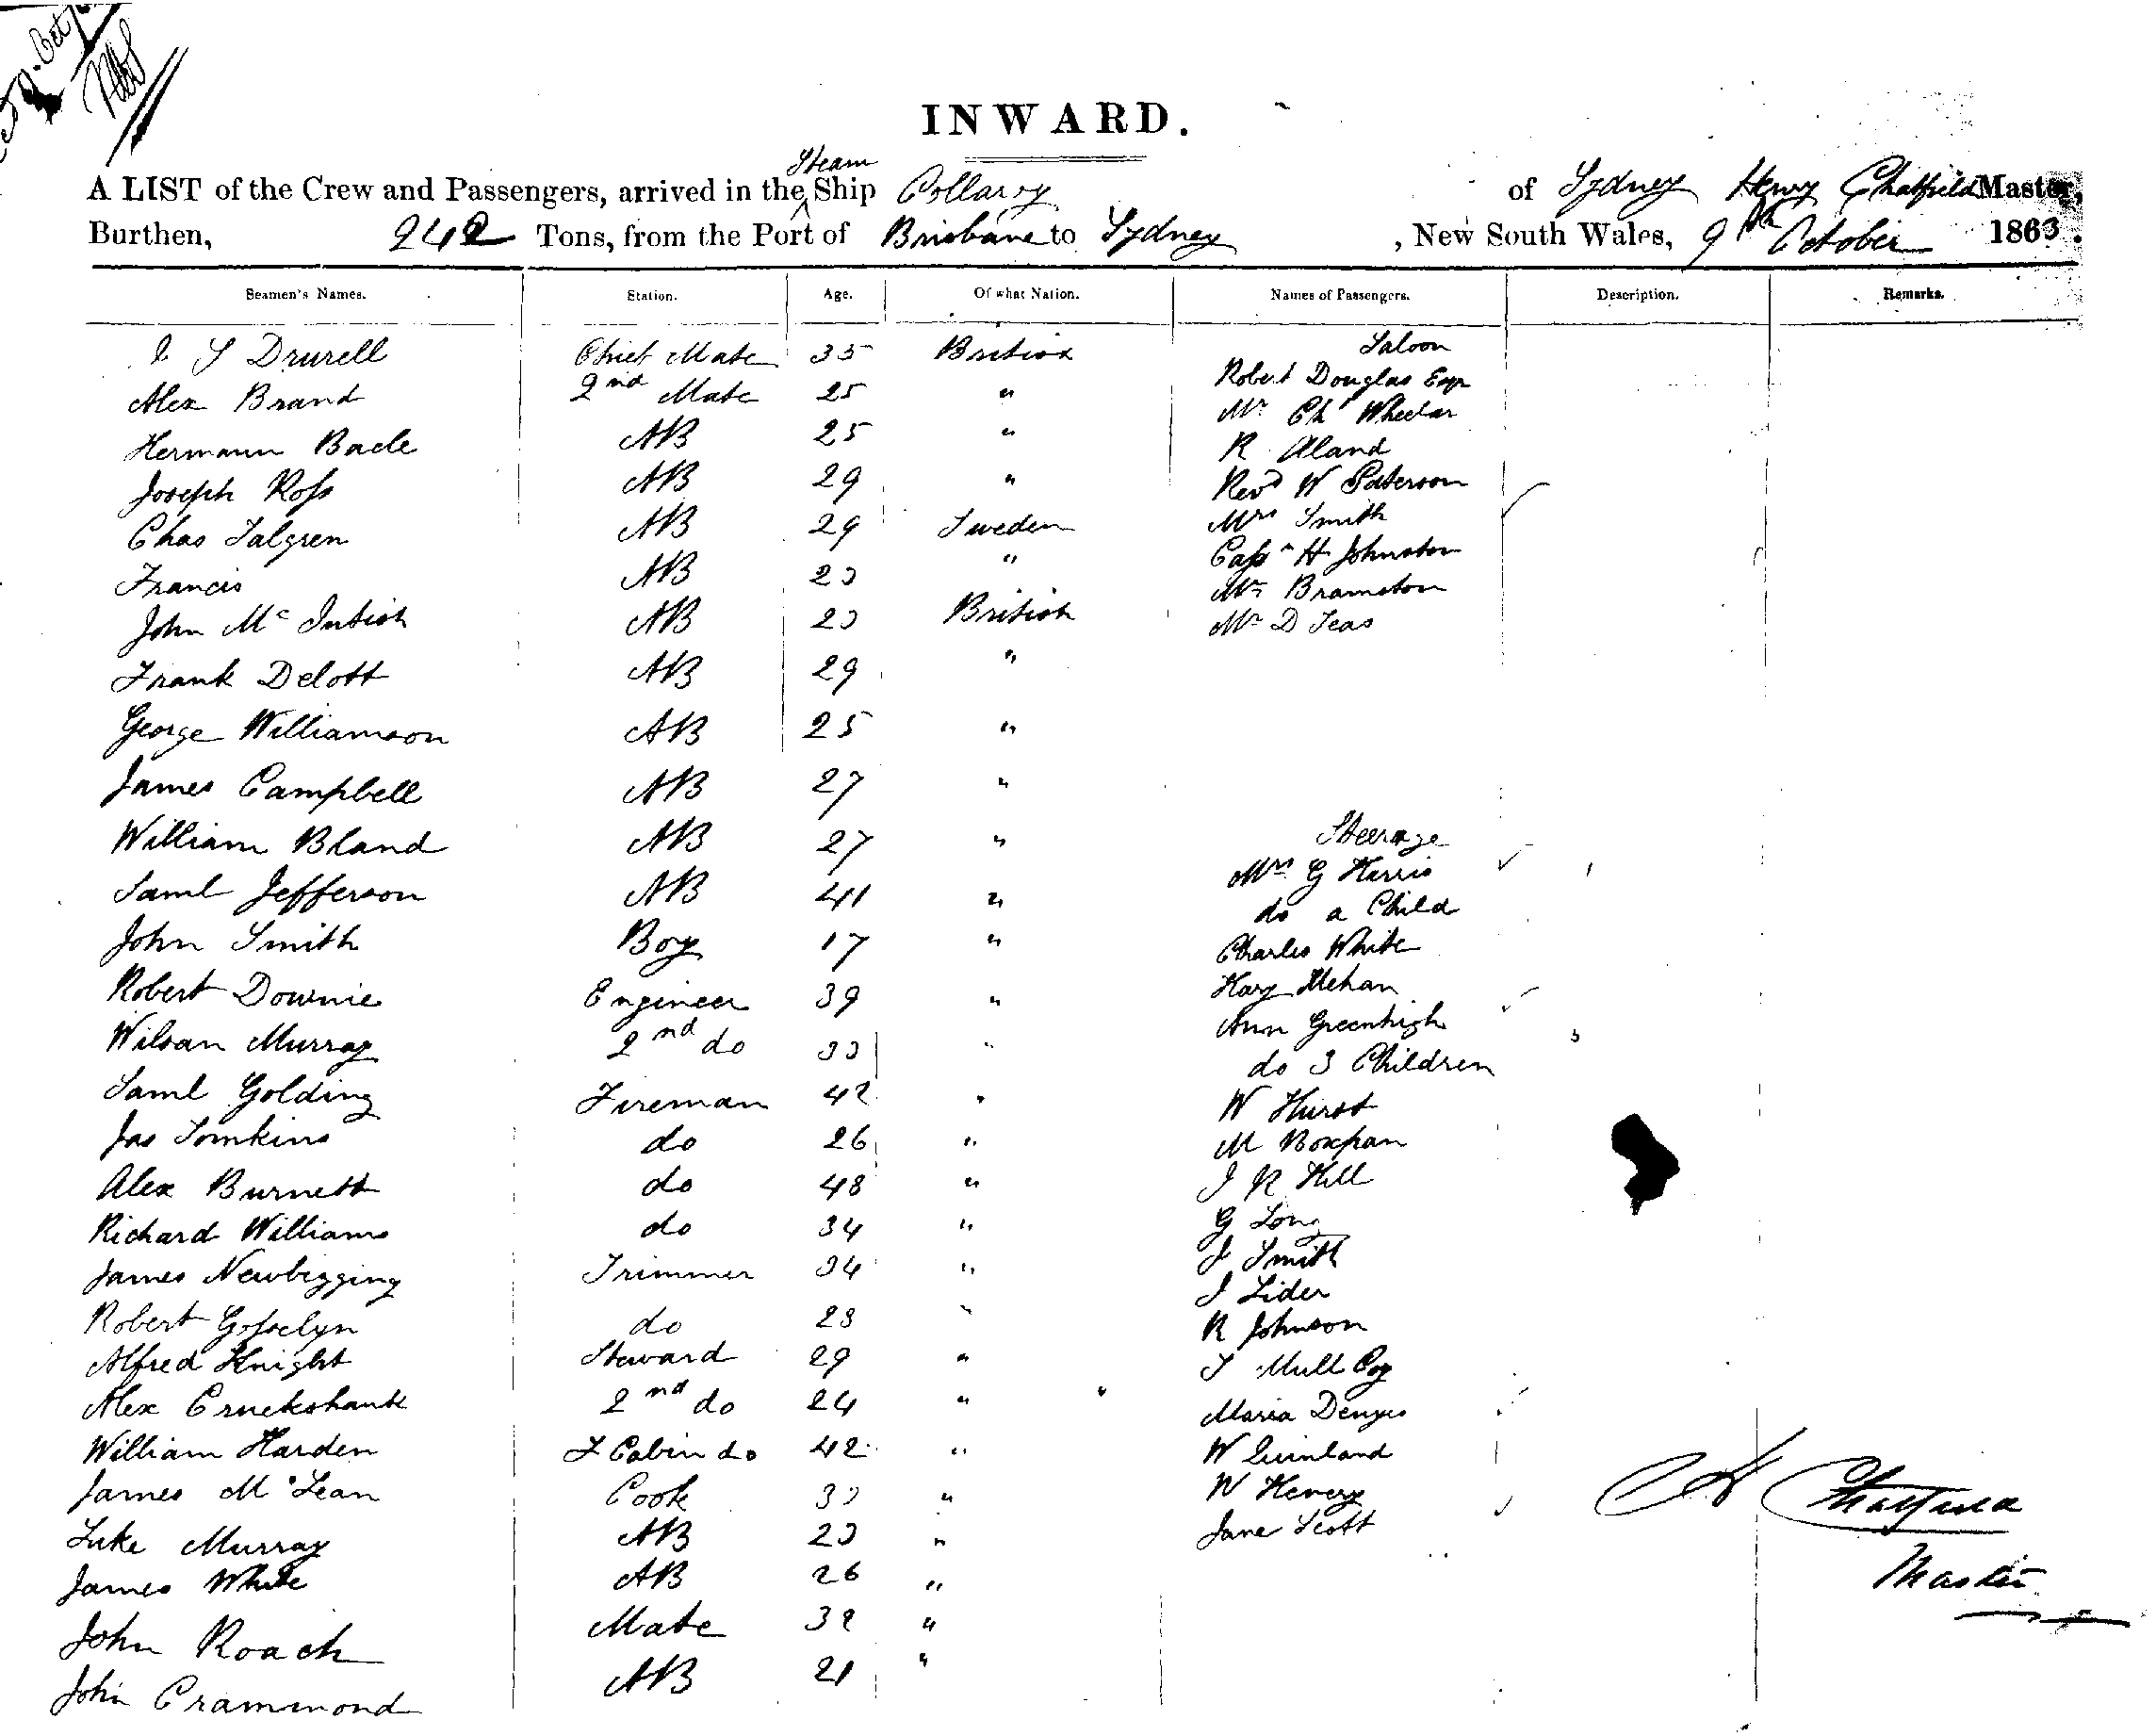 INWARD.
Steam
A LIST of the Crew and Passengers, arrived in the Ship Collaroy of Sydney Henry Chatfield Master,
Burthen, 242 Tons, from the Port of Brisbane to Sydney, New South Wales, 9th October 1863.
Seamen's Names. Station. Age. Of what Nation. Names of Passengers. Description. Remarks.
Saloon
J S Drurell Chief Mate 35 British
Robert Douglas Esqr
Alex Brand 2nd Mate 25 "
Mr Ch Wheeler
Hermann Bade AB 25 " R Aland
Joseph Ross AB 29 " Revd W Paterson
Chas Talgren AB 29 Sweden Mrs Smith
Capn H Johnston
Francis AB 23 " Mr Bramston
John Mc Intish AB 23 British Mr D Teas
Frank Delott AB 29 "
George Williamson AB 25 "
James Campbell AB 27 "
Steerage
William Bland AB 27 "
Mrs G Harris
Saml Jefferson AB 41 " do a Child
John Smith Boy 17 " Charles White
Robert Downie Engineer 39 " Mehan
Ann Greenhigh
Wilson Murray 2nd do 33 "
do 3 Children
Saml Golding Fireman 42 " W Hurst
Jas Tomkins do 26 " M
Alex Burnett do 48 " J R Hill
Richard Williams do 34 " G Long
J Smith
James Newbigging Trimmer 34 " J Lider
Robert Gosselyn do 23 " R Johnson
Alfred Knight Steward 29 " T Mull
Alex Cruckshank 2nd do 24 " Maria Denyes
William Harden F Cabin do 42 " W Quinland
James McLean Cook 33 " W Henery
H Chatfield
Luke Murray AB 23 " Jane Scott
James White AB 26 "
Master
John Roach Mate 32 "
John Crammond AB 21 "